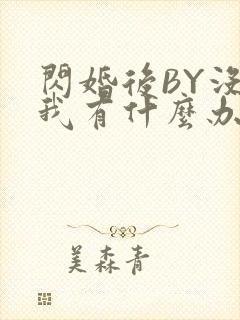 閃婚後BY沒
我有什麼办
美森青